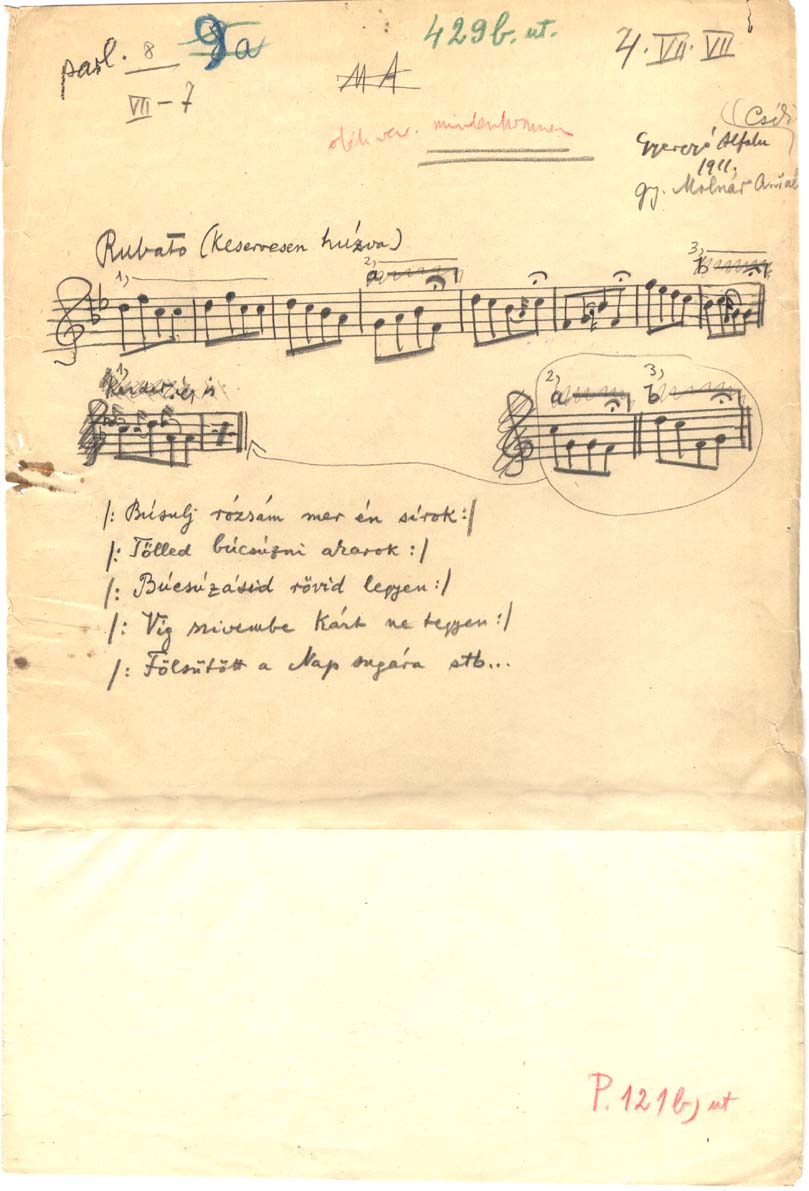 parl. 8 9a 429b. ut. 4. VII. VII
VII – 7
MA
(Csík)
mindenhonnan
Gyergyó Alfalu
1911.
gy. Molnár Antal
Rubato (Keservesen húzva)
1,
2, a
3, b
1,
2, a
3, b
/: Búsulj rózsám mer én sírok :/
/: Tőlled búcsúzni akarok :/
/: Búcsúzásid rövid legyen :/
/: Víg szivembe kárt ne tegyen :/
/: Fölsütött a Nap sugára stb...
P. 121b, ut